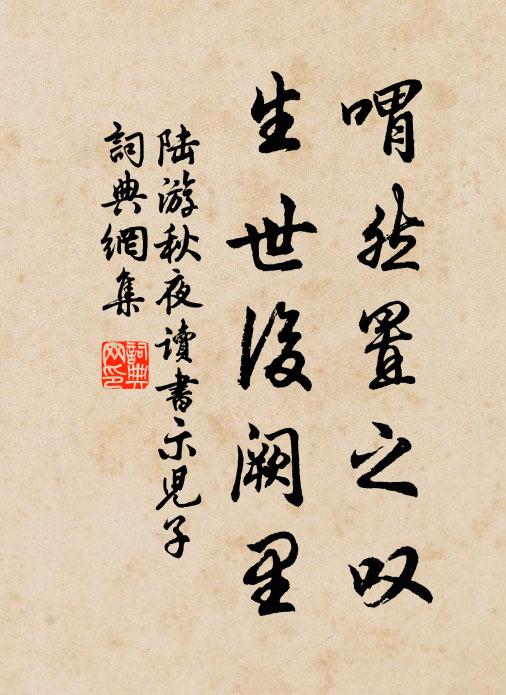 喟然置之叹
生世后阙里
陆游秋夜读书示儿子
词典网集
词典网印